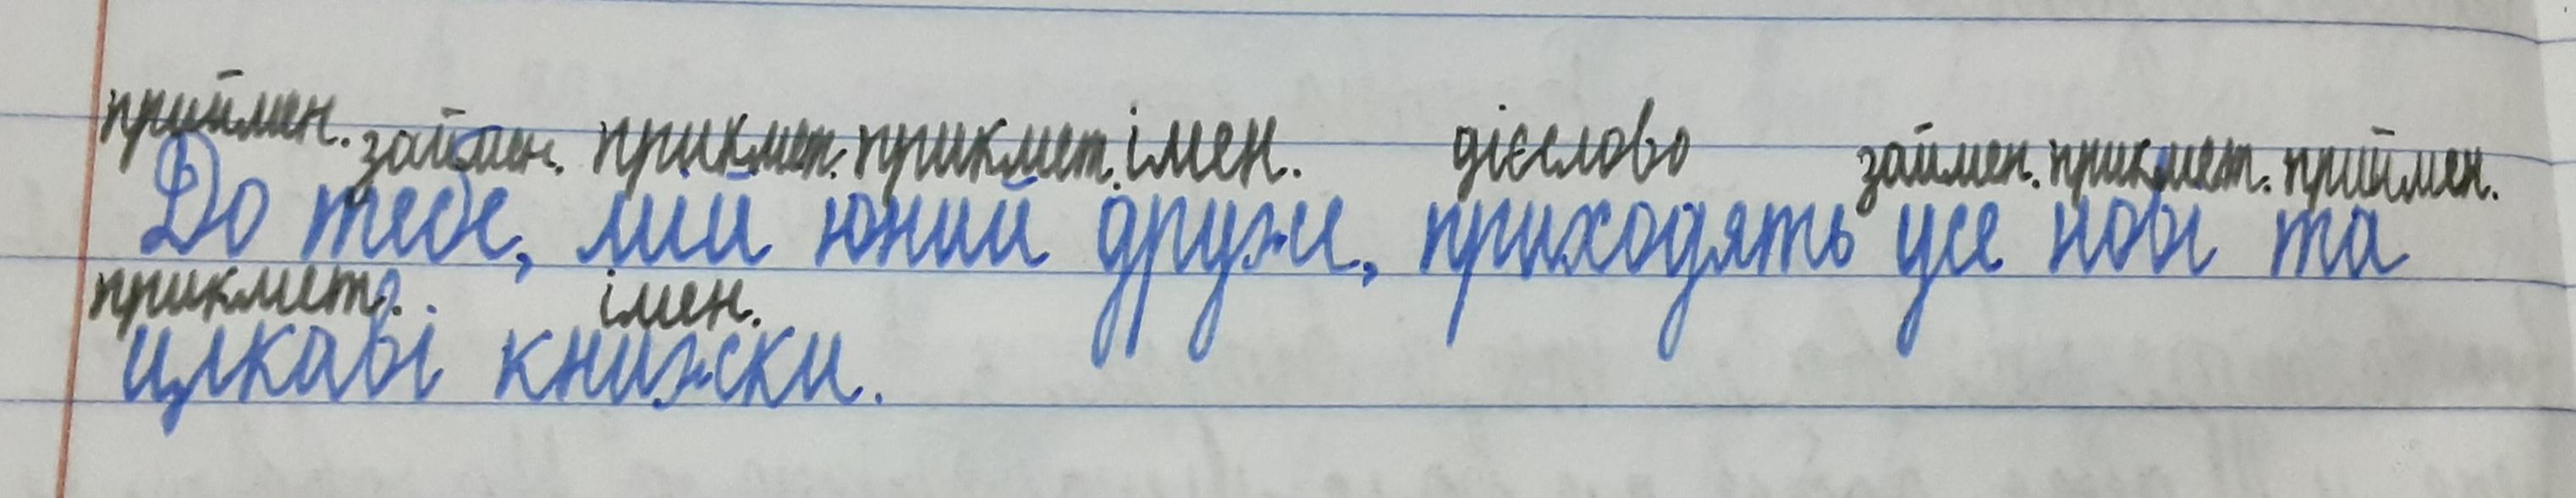 приймен. займен. прикмет. прикмет. імен. дієслово займен. прикмет. приймен.
До тебе, мій юний друже, приходять усе нові та
прикмет. імен.
цікаві книжки.